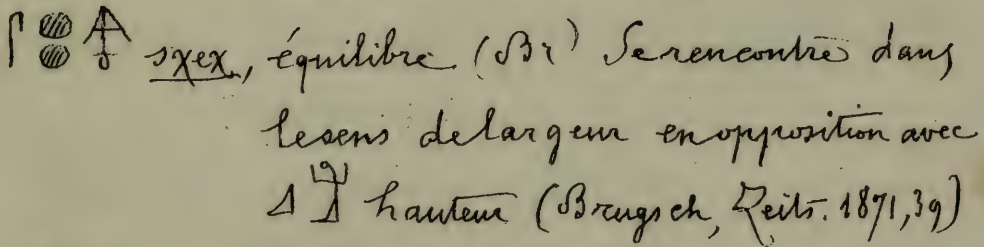 𓋴𓐍𓐍 sχeχ, équilibre (Br) Se rencontre dans
le sens de largeur en opposition avec
hauteur (Brugsch, Zeits. 1871, 39)